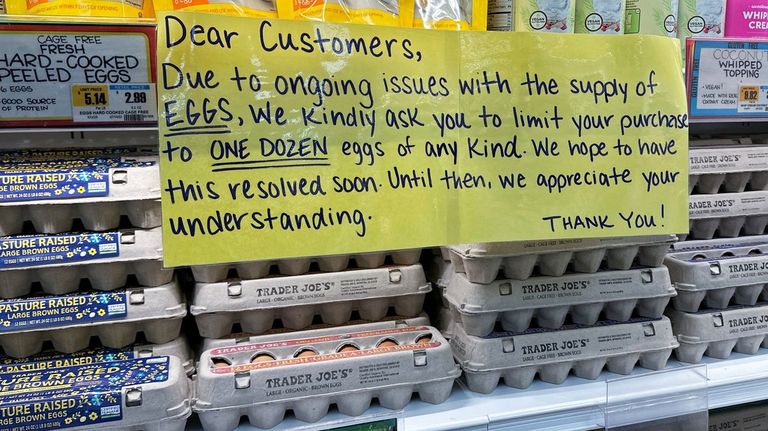 Dear Customers,
Due to ongoing issues with the supply of
EGGS, We kindly ask you to limit your purchase
to ONE DOZEN eggs of any kind. We hope to have
this resolved soon. Until then, we appreciate your
understanding.
THANK YOU!
CAGE FREE
FRESH
HARD-COOKED
PEELED EGGS
6 EGGS
GOOD SOURCE
OF PROTEIN
UNIT PRICE
5.14
2.99
EGGS HARD COOKED CAGE FREE
VEGAN
VEGAN
WHIPP
CREA
GLUTEN FREE
COCONUT
WHIPPED
TOPPING
VEGAN!
MADE WITH REAL
COCONUT CREAM
UNIT PRICE
8.62
LARGE BROWN EGGS
PASTURE RAISED
LARGE BROWN EGGS
PASTURE RAISED
LARGE BROWN EGGS
PASTURE RAISED
LARGE BROWN EGGS
TRADER JOE'S
LARGE · ORGANIC · BROWN EGGS
TRADER JOE'S
LARGE · ORGANIC · BROWN EGGS
LARGE · CAGE FREE · BROWN EGGS
TRADER JOE'S
LARGE · CAGE FREE · BROWN EGGS
TRADER JOE'S
LARGE · CAGE FREE · BROWN EGGS
TRADER JOE'S
TRADER JOE'S
TRADER JOE'S
TRADER JOE'S